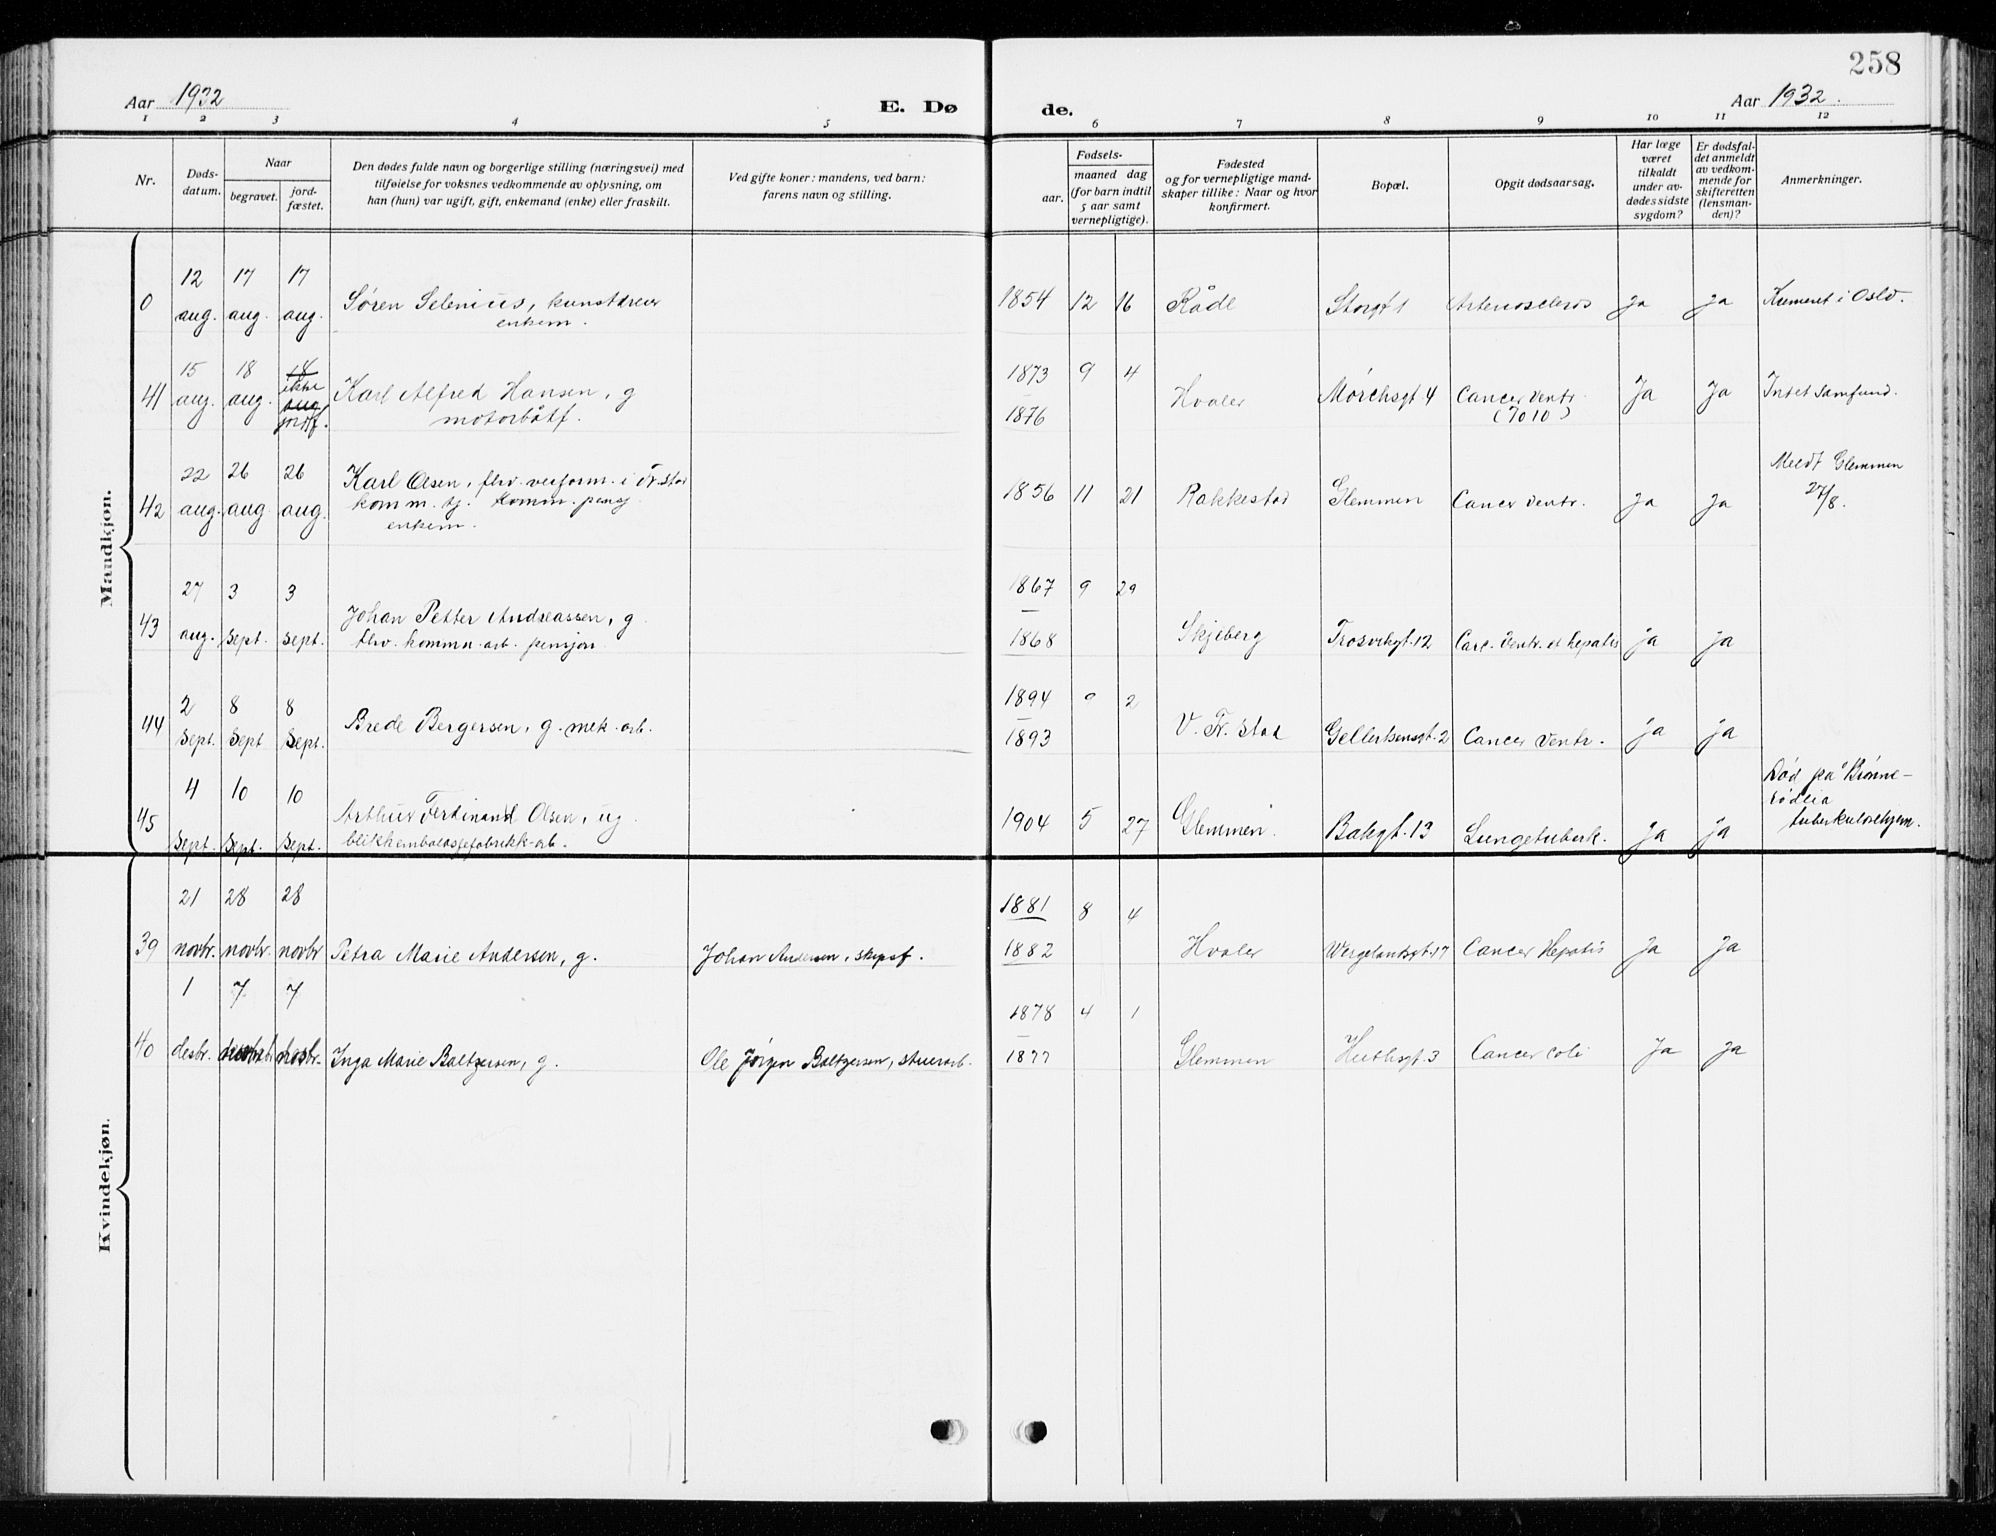 258
Aar 1932
E. Dø
de.
Aar 1932.
1 2 3 4 5 6 7 8 9 10 11 12
Nr.
Døds-
datum.
Naar
begravet.
jord-
fæstet.
Den dødes fulde navn og borgerlige stilling (næringsvei) med
tilføielse for voksnes vedkommende av oplysning, om
han (hun) var ugift, gift, enkemand (enke) eller fraskilt.
Ved gifte koner: mandens, ved barn:
farens navn og stilling.
Fødsels-
aar.
maaned dag
(for barn indtil
5 aar samt
vernepligtige).
Fødested
og for vernepligtige mand-
skaper tillike: Naar og hvor
konfirmert.
Bopæl.
Opgit dødsaarsag.
Har læge
været
tilkaldt
under av-
dødes sidste
sygdom?
Er dødsfal-
det anmeldt
av vedkom-
mende for
skifteretten
(lensman-
den)?
Anmerkninger.
Mandkjøn.
12 17 17
0 aug. aug. aug. Søren Selenius, kunstdreier 1854 12 16 Råde Storgt 1 Arterioscleros ja ja Kremert i Oslo.
enkem.
15 18 18
ikke
41 aug. aug. aug Karl Alfred Hansen, g 1873 9 4 Hvaler Mørchsgt. 4 Cancer ventr. Ja Ja Intet samfund.
jordf. motorbåtf. 1876 (7010)
22 26 26 Karl Olsen, fhv. verform. i Fr.stad Meldt Glemmen
42 aug. aug aug. komm. tj. komm. pensj 1856 11 21 Rakkestad Glemmen Cancer ventr. ja ja 27/8.
enkem.
27 3 3 1867 9 29
43 aug. sept. sept. Johan Petter Andreassen, g. 1868 Skjeberg Trosvikgt. 12 Carc. ventr. et hepatis ja ja
fhv. komm. arb. pensjon
2 8 8 1894 9 2
44 Sept. Sept Sept. Brede Bergersen, g. mek. arb. 1893 V. Fr. stad Gellertsensgt. 2 Cancer ventr. ja ja
4 10 10 Død på Brønne-
rødlia
45 Sept. Sept. Sept. Arthur Ferdinand Olsen, ug. 1904 5 27 Glemmen. Bakgt. 13 Lungetuberk. ja ja tuberkulosehjem.
blikkemballasjefabrikk-arb.
Kvindekjøn.
21 28 28 1881 8 4
39 novbr. novbr. novbr Petra Marie Andersen, g. Johan Andersen, skipsf. 1882 Hvaler Wergelandsgt. 17 Cancer Hepatis Ja Ja
1 7 7 1878 4 1
40 desbr. desbr. desbr. Inga Marie Baltzersen, g. Ole Jörgen Baltzersen, stuerarb. 1877 Glemmen Huthsgt. 3 Cancer coli Ja Ja